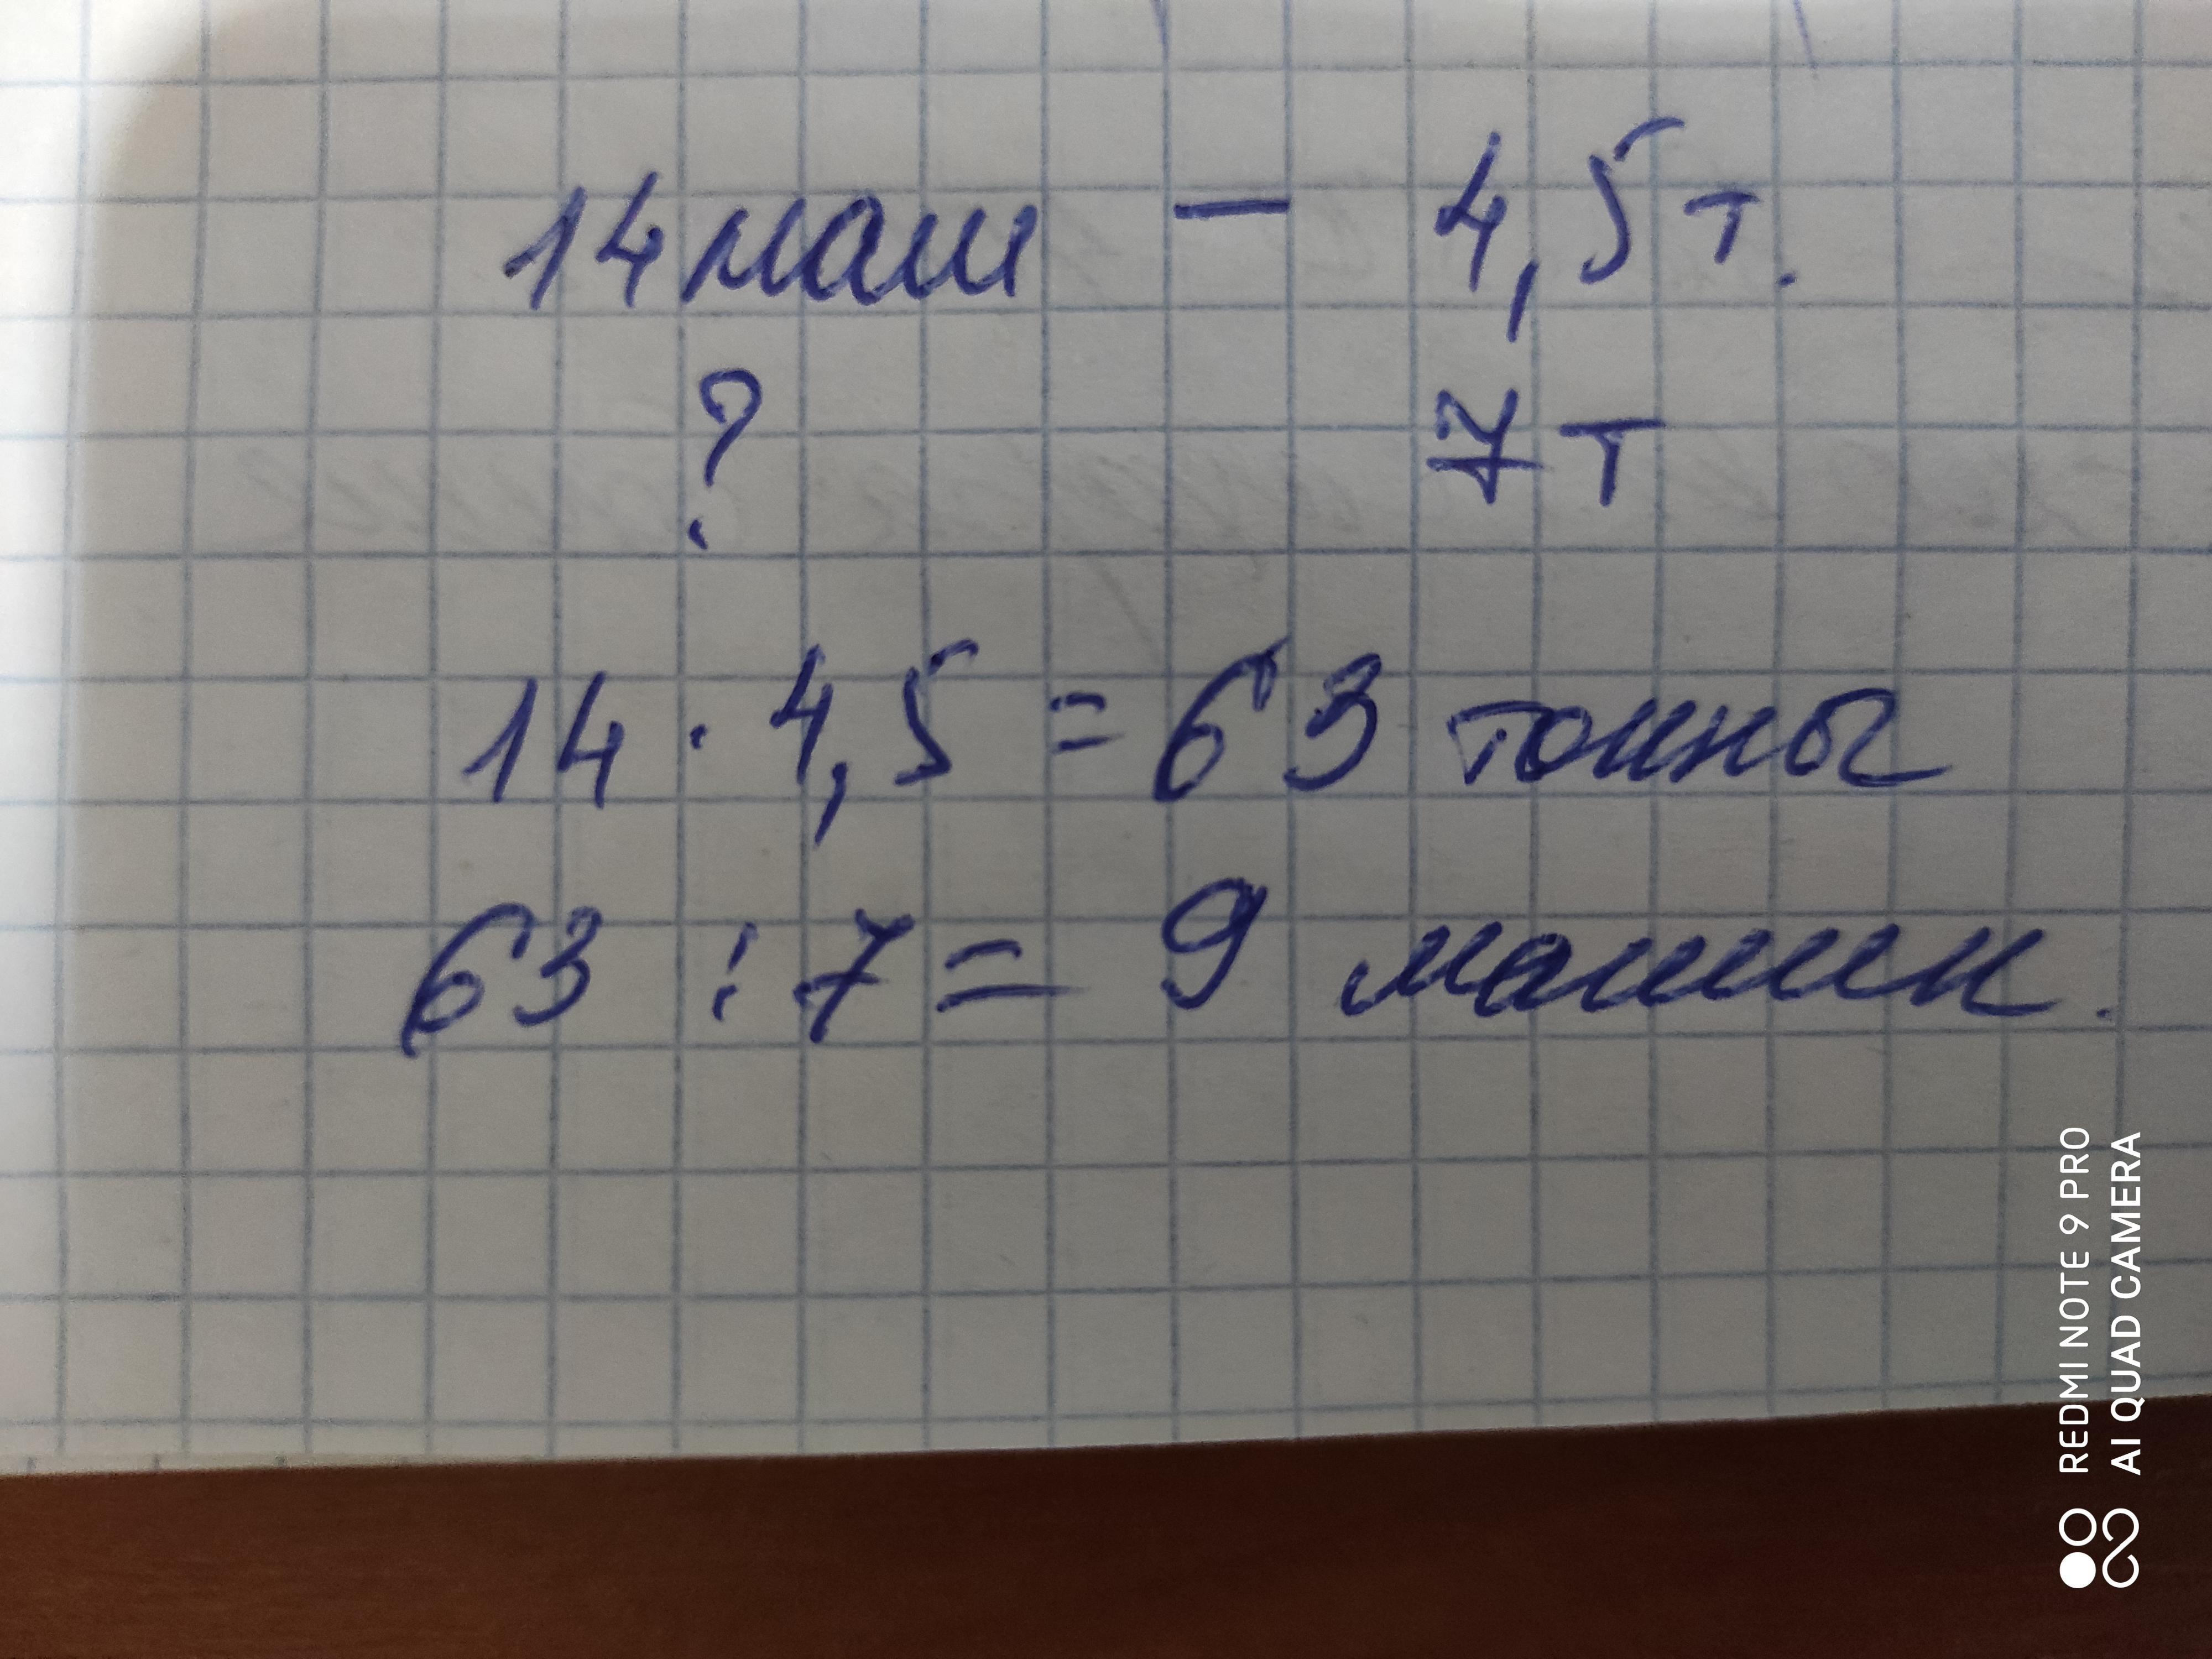 14 маш – 4,5 т.
? 7 т
14 · 4,5 = 63 тонны
63 : 7 = 9 машин.
REDMI NOTE 9 PRO
AI QUAD CAMERA